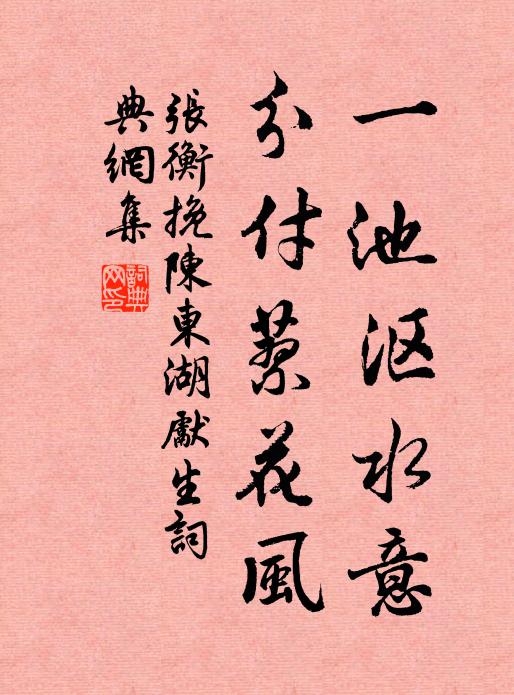 一池沤水意
分付蔡花風
張衡挽陳東湖獻生詞
典網集
詞典網印